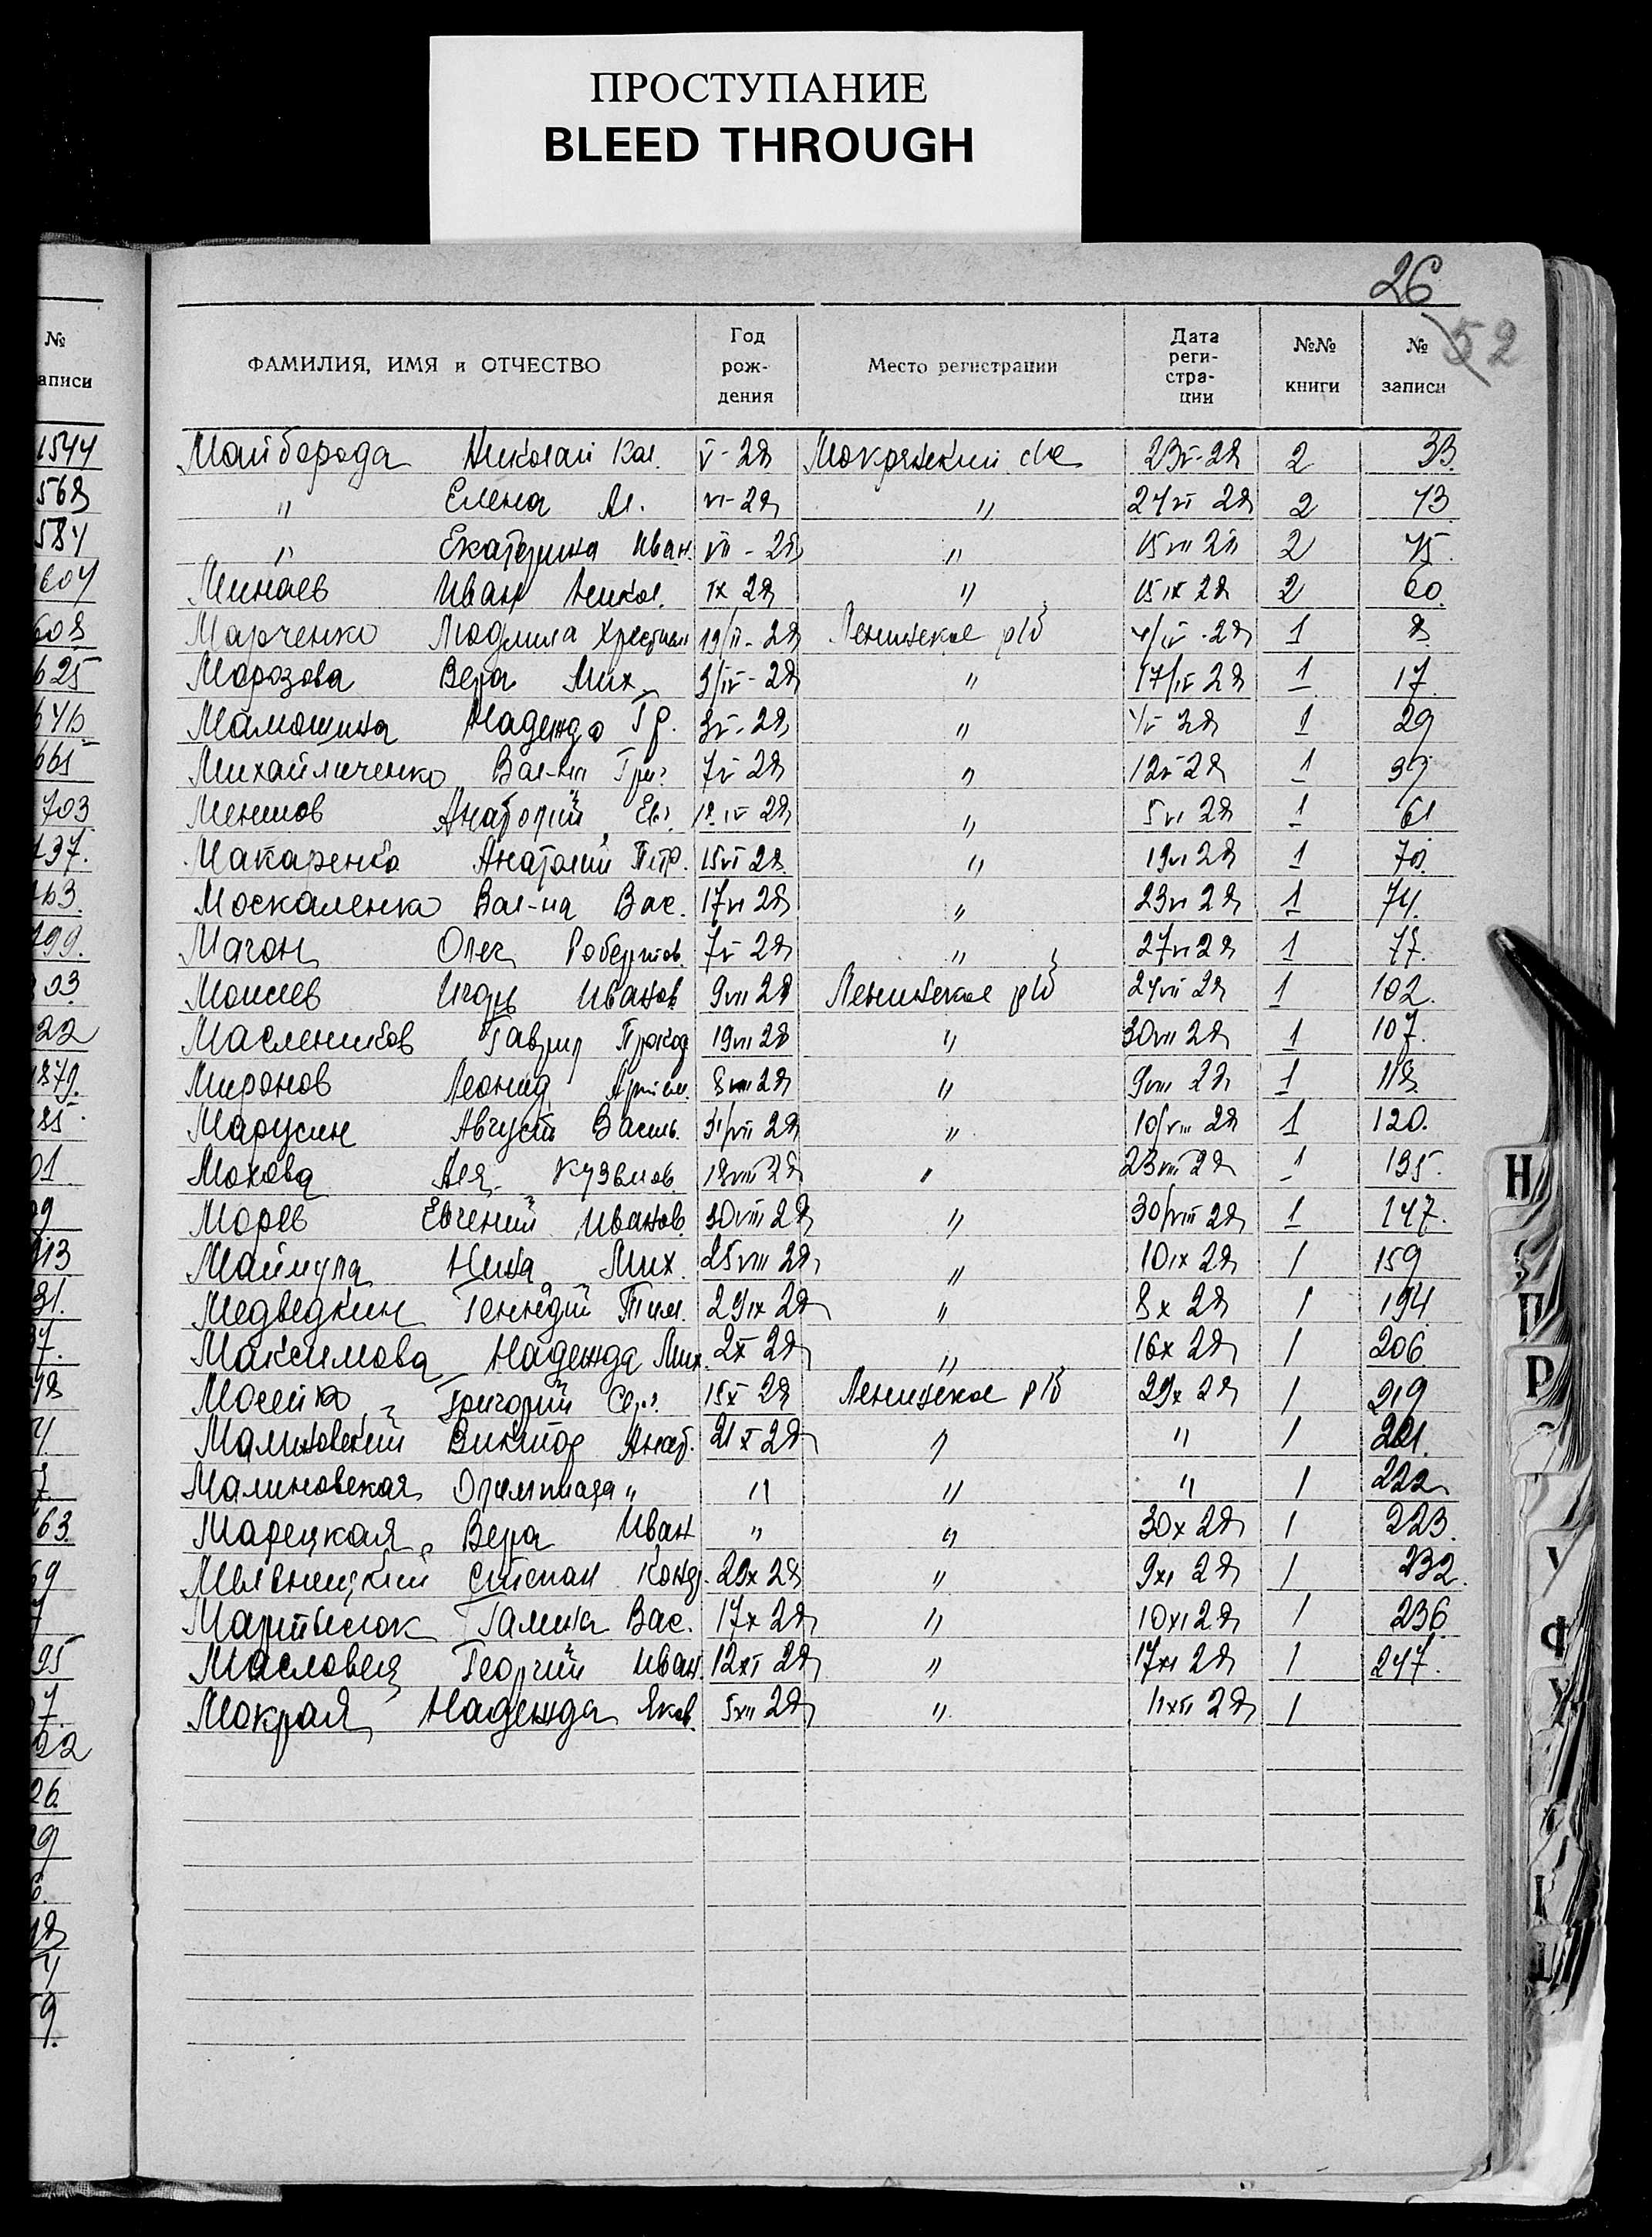 ПРОСТУПАНИЕ
BLEED THROUGH
26
52
№ записи
ФАМИЛИЯ, ИМЯ и ОТЧЕСТВО Год рождения Место регистрации Дата регистрации №№ книги № записи
Майборода Николай V-28 Мокрянский 23V-28 2 33.
" Елена Ал. VI-28 " 24VI 28 2 43
" Екатерина Иван. VII-28 " 15VII 28 2 45.
Минаев Иван Никол. IX 28 " 15IX 28 2 60.
Марченко Людмила 19/II-28 Ленинское 4/IV-28 1 8
Марозова Вера Мих. 3/IV-28 " 17/IV 28 1 17.
Мамошина Надежда Гр. 3V-28 " 28 1 29
Михайличенко Вал-на Григ 7V 28 " 12V 28 1 39
Меншов Анатолий Евг. 18.IV 28 " 5VI 28 1 61
Макаренко Анатолий Петр. 15VI 28 " 19VI 28 1 70.
Москаленко Вал-на Вас. 17VI 28 " 23VI 28 1 74.
Магон Олег Робертов. 7V 28 " 27VI 28 1 77.
Моисеев Игорь Иванов 9VII 28 Ленинское 24VII 28 1 102.
Маслеников Гаврил 19VII 28 " 30VII 28 1 107.
Миронов Леонид 8VIII 28 " 9VIII 28 1 118
Марусин Августъ Василь. 31/VII 28 " 10/VIII 28 1 120.
Мохова Ася Кузьмов. 18VIII 28 " 23VIII 28 1 135.
Морев Евгений Иванов. 30VIII 28 " 30/VIII 28 1 147.
Маймула Нина Мих. 25VIII 28 " 10IX 28 1 159
Медведкин Геннадий Тим. 29IX 28 " 8X 28 1 194.
Максимова Надежда Мих. 2X 28 " 16X 28 1 206
Мосейко Григорий Серг. 15X 28 Ленинское 29X 28 1 219
Малиновский Виктор Анат. 21X 28 " " 1 221.
Малиновская Олимпиада " " " " 1 222
Марецкая Вера Иван " " 30X 28 1 223.
Степан Конд. 29X 28 " 9XI 28 1 232.
Мартынюк Галина Вас. 17X 28 " 10XI 28 1 236
Масловец Георгий Иван. 12XI 28 " 17XI 28 1 247.
Мокрая Надежда Яков. 5XII 28 " 11XII 28 1